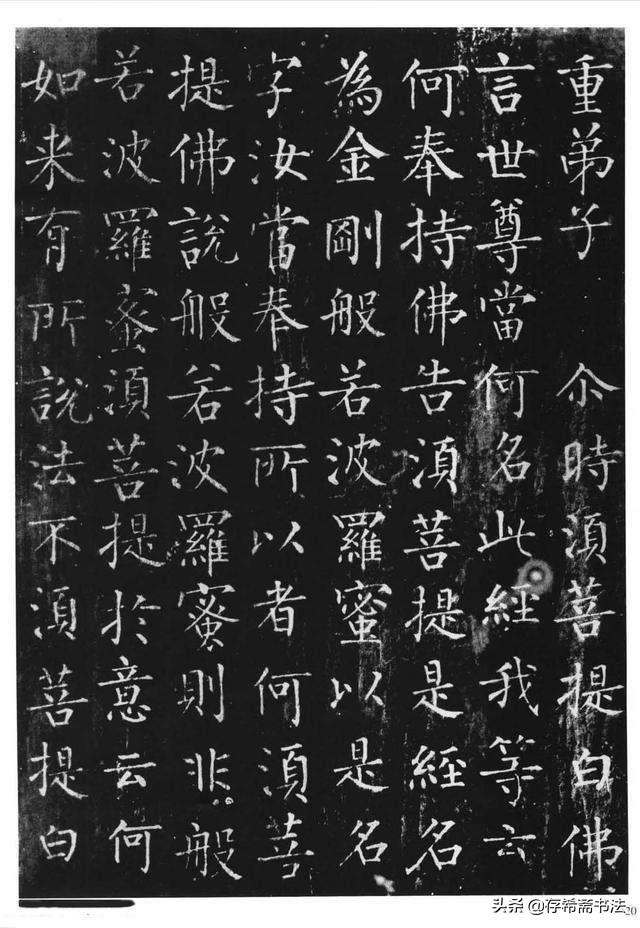 重弟子 尒時須菩提白佛
言世尊當何名此經我等云
何奉持佛告須菩提是經名
為金剛般若波羅蜜以是名
字汝當奉持所以者何須菩
提佛說般若波羅蜜則非般
若波羅蜜須菩提於意云何
如来有所說法不須菩提白
头条 @存希斋书法
20